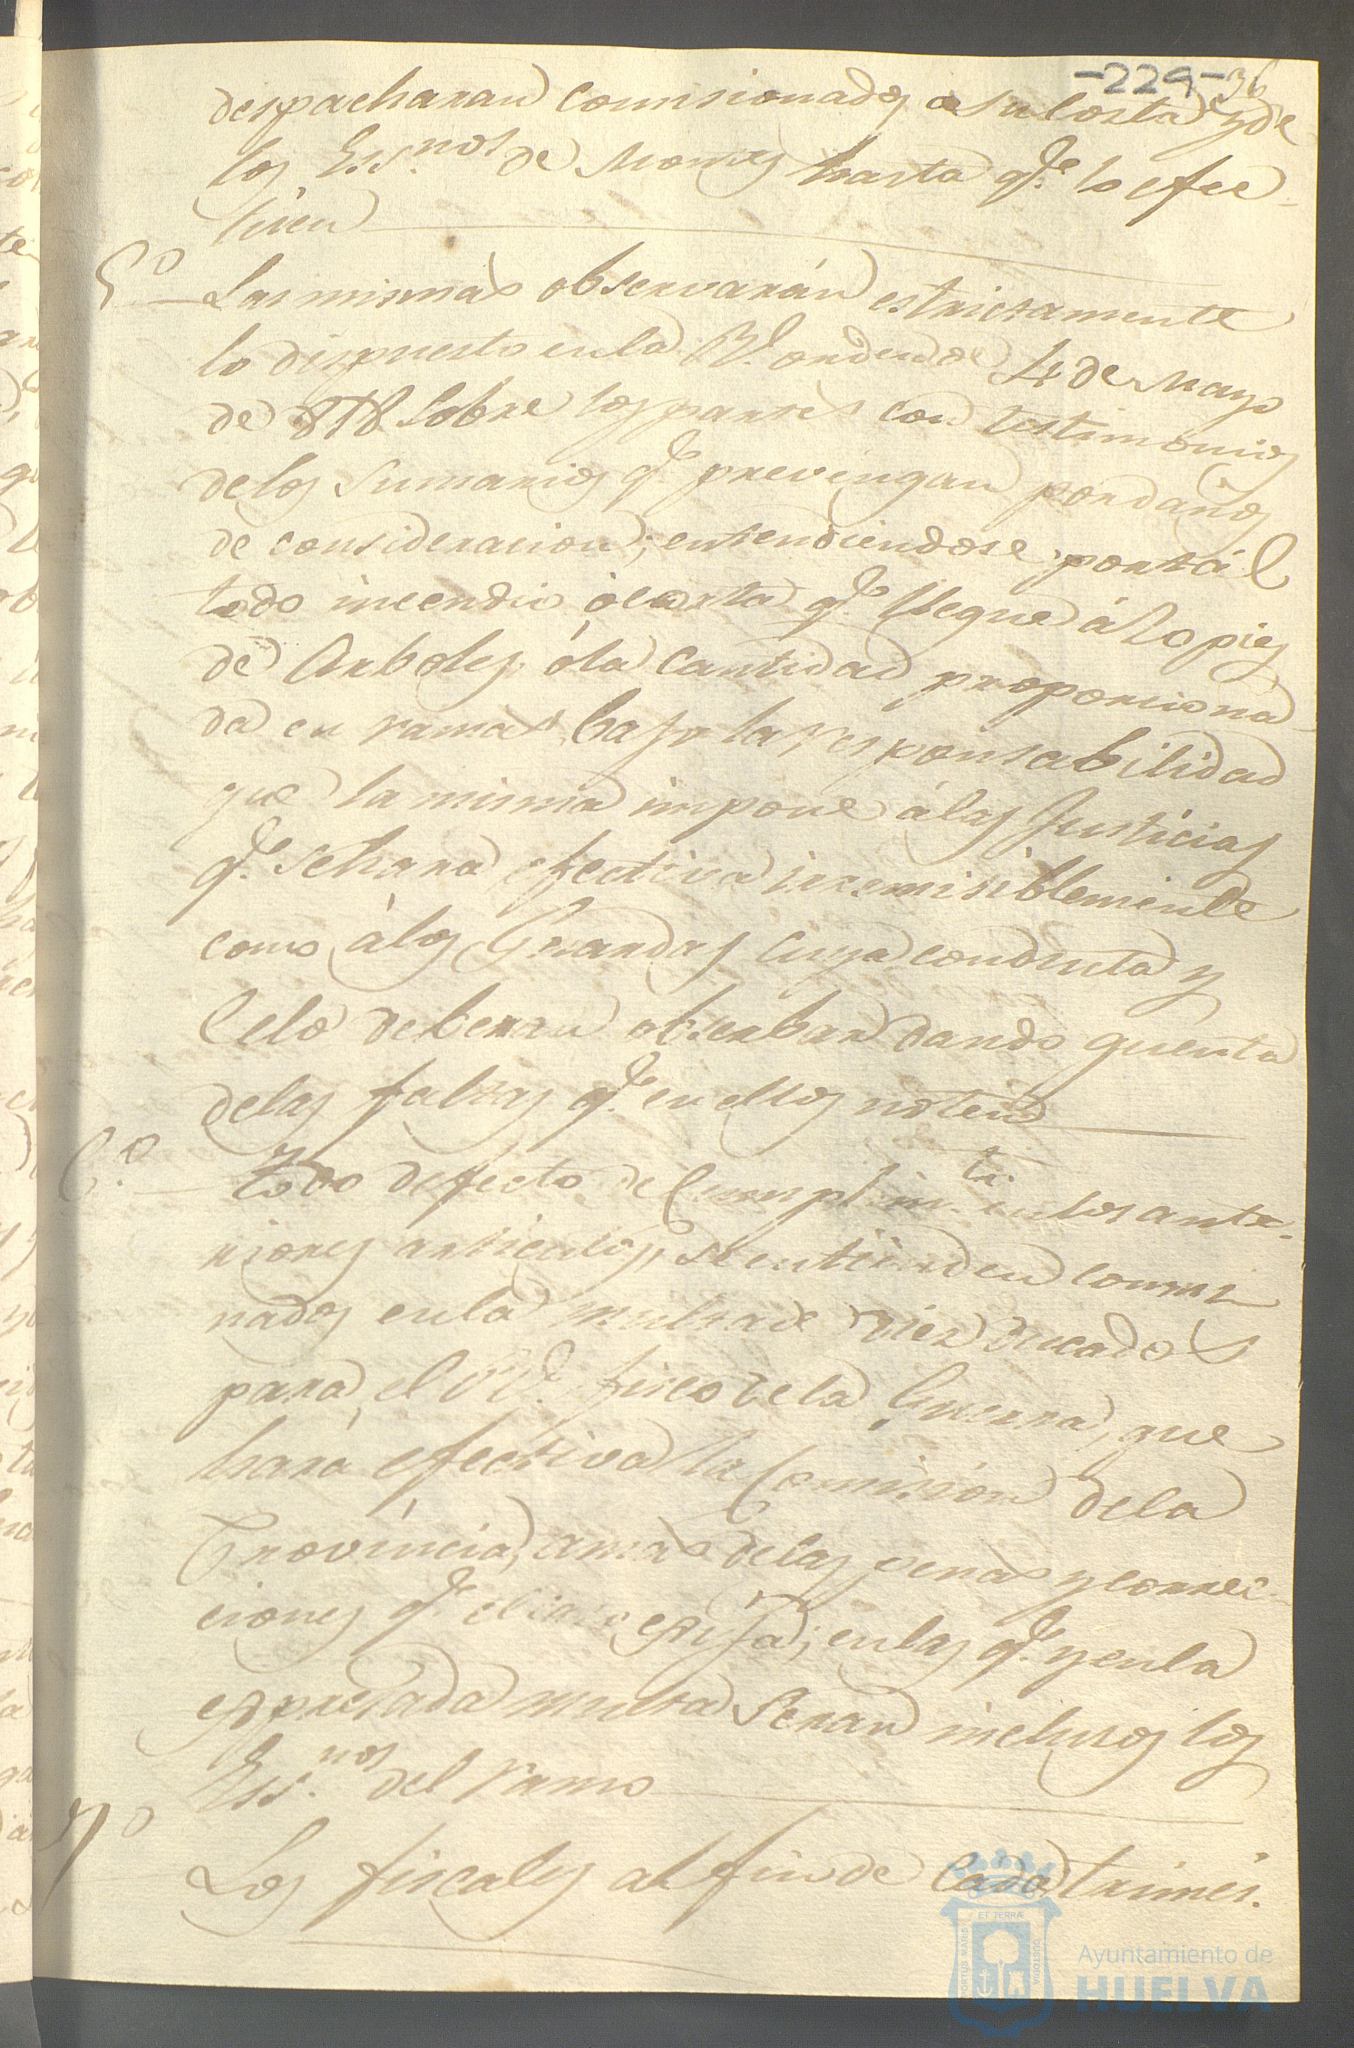 -229- 36
despacharan comisionados a su costa, y de
los Ess.nos de Montes hasta q.e lo efec-
tuen
5.o Las mismas observarán estrictamente
lo dispuesto en la R.l orden de 4 de Mayo
de 818 sobre los partes con testimonios
de los Sumarios q.e prevengan por daños
de consideracion; entendiendose por tál
todo incendio ó corta q.e llegue á 20 pies
de Arboles, ó la cantidad proporciona
da en ramas bajo la responsabilidad
que la misma impone á las Justicias
q.e se hara efectiva irremisiblemente
como á los Guardas cuya conducta y
Celo deberan obserbar dando quenta
de las faltas q.e en ellos noten
6.o Todo defecto de Cumplim.to en los ante-
riores articulos, se entienden conmi
nados en la multa de diez ducados
para el R.l fisco de la Guerra, que
hará efectiva la Comisión de la
Provincia, amas de las penas y correc-
ciones q.e el caso exija; en las q.e y en la
expresada multa seran inclusos los
Ess.nos del ramo
7.o Los fiscales al fin de cada trimes.
ET TERRÆ
PORTUS MARIS
CUSTODIA
Ayuntamiento de
HUELVA